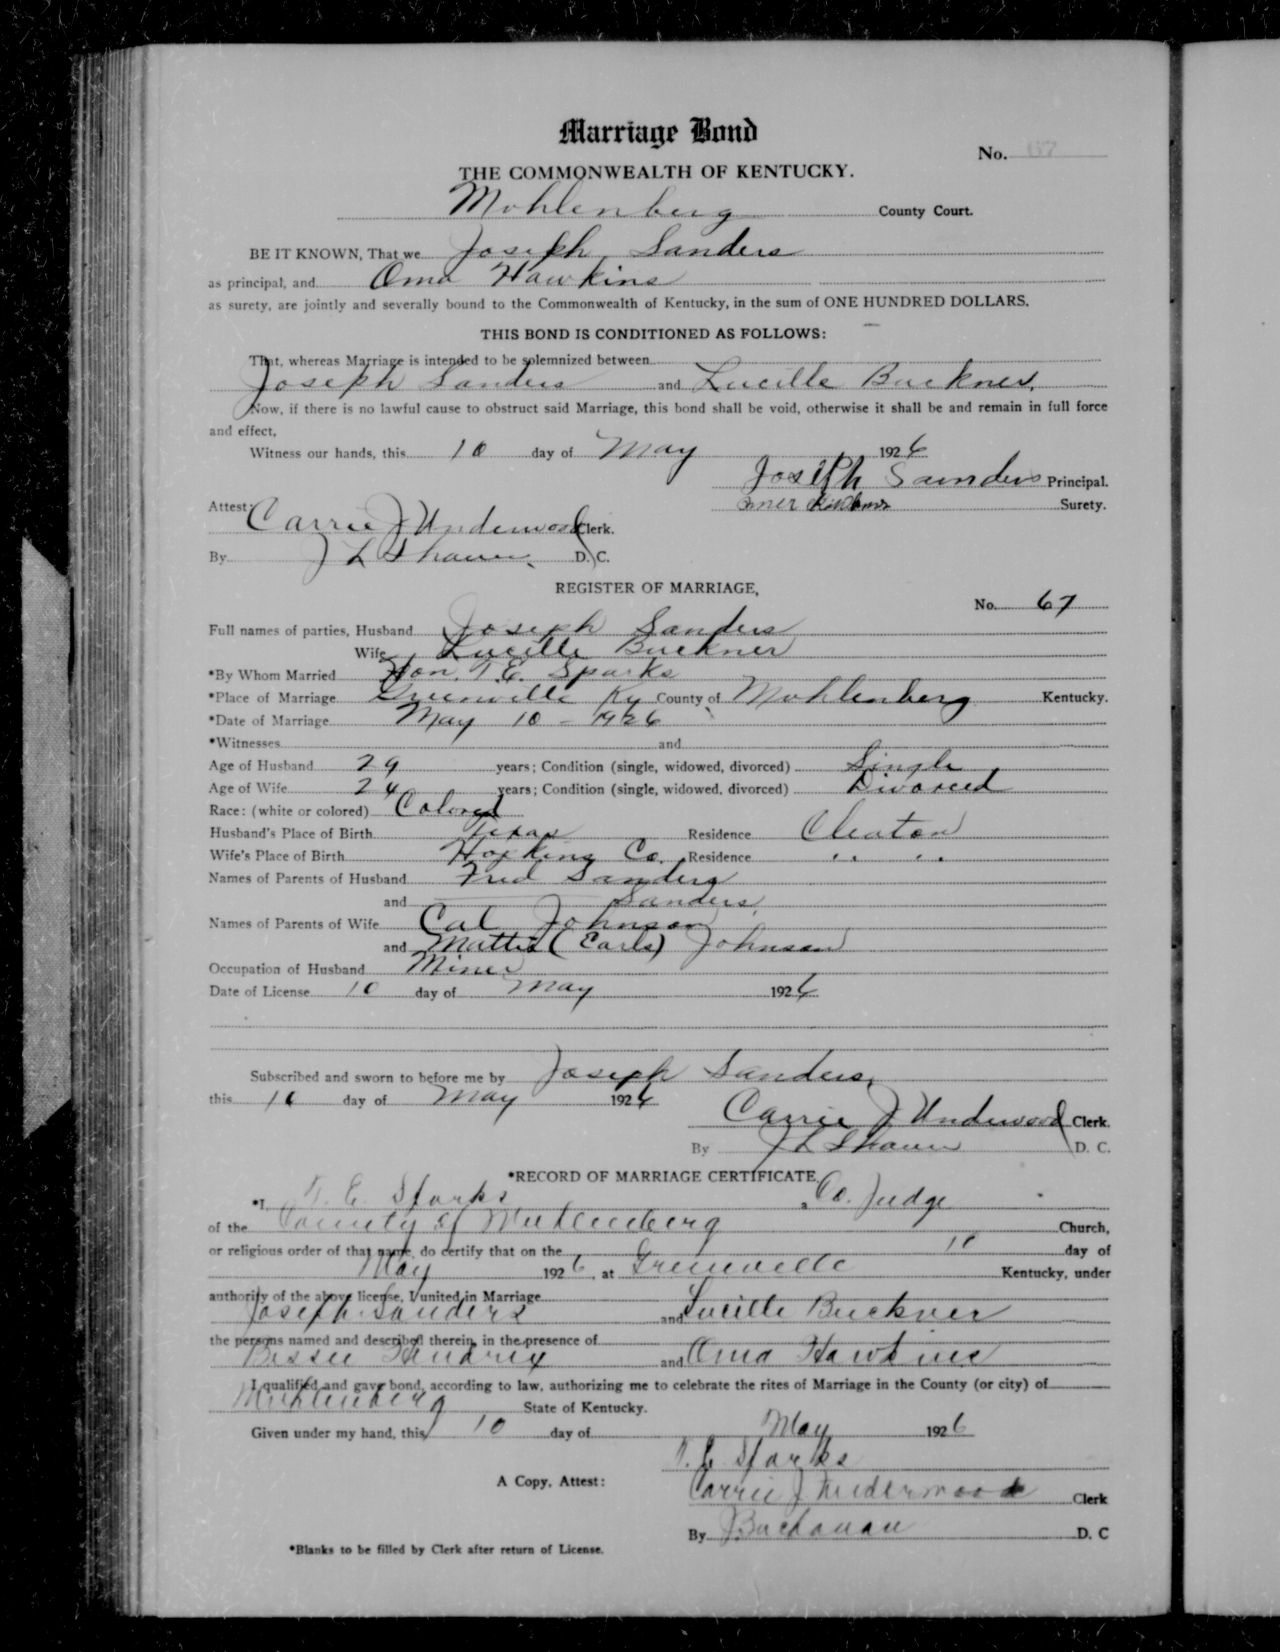 Marriage Bond
No. 67
THE COMMONWEALTH OF KENTUCKY.
Muhlenberg County Court.
BE IT KNOWN, That we Joseph Sanders
as principal, and Oma Hawkins
as surety, are jointly and severally bound to the Commonwealth of Kentucky, in the sum of ONE HUNDRED DOLLARS.
THIS BOND IS CONDITIONED AS FOLLOWS:
That, whereas Marriage is intended to be solemnized between
Joseph Sanders and Lucille Buckner.
Now, if there is no lawful cause to obstruct said Marriage, this bond shall be void, otherwise it shall be and remain in full force
and effect,
Witness our hands, this 10 day of May 1926
Joseph Saunders Principal.
Surety.
Attest: Carrie J Underwood Clerk.
By J L D. C.
REGISTER OF MARRIAGE,
No. 67
Full names of parties, Husband Joseph Sanders
Wife Lucille Buckner
*By Whom Married Hon. T. E. Sparks
*Place of Marriage Greenville Ky County of Muhlenberg Kentucky.
*Date of Marriage May 10 - 1926
*Witnesses and
Age of Husband 29 years; Condition (single, widowed, divorced) Single
Age of Wife 24 years; Condition (single, widowed, divorced) Divorced
Race: (white or colored) Colored
Husband's Place of Birth Texas Residence Cleaton
Wife's Place of Birth Hopkins Co. Residence " "
Names of Parents of Husband Fred Sanders
and Sanders.
Names of Parents of Wife Cal Johnson
and Mattie (Earls) Johnson
Occupation of Husband Miner
Date of License 10 day of May 1926
Subscribed and sworn to before me by Joseph Sanders,
this 10 day of May 1926
Carrie J Underwood Clerk.
By J L D. C.
*RECORD OF MARRIAGE CERTIFICATE.
*I, T. E. Sparks, Co. Judge
of the County of Muhlenberg Church,
or religious order of that name, do certify that on the 10 day of
May 1926, at Greenville Kentucky, under
authority of the above license, I united in Marriage
Joseph Sanders and Lucille Buckner
the persons named and described therein, in the presence of
Bessie Hendrix and Oma Hawkins
I qualified and gave bond, according to law, authorizing me to celebrate the rites of Marriage in the County (or city) of
Muhlenberg State of Kentucky.
Given under my hand, this 10 day of May 1926
T. E. Sparks
A Copy, Attest: Carrie J Underwood Clerk
By J Buchanan D. C
*Blanks to be filled by Clerk after return of License.